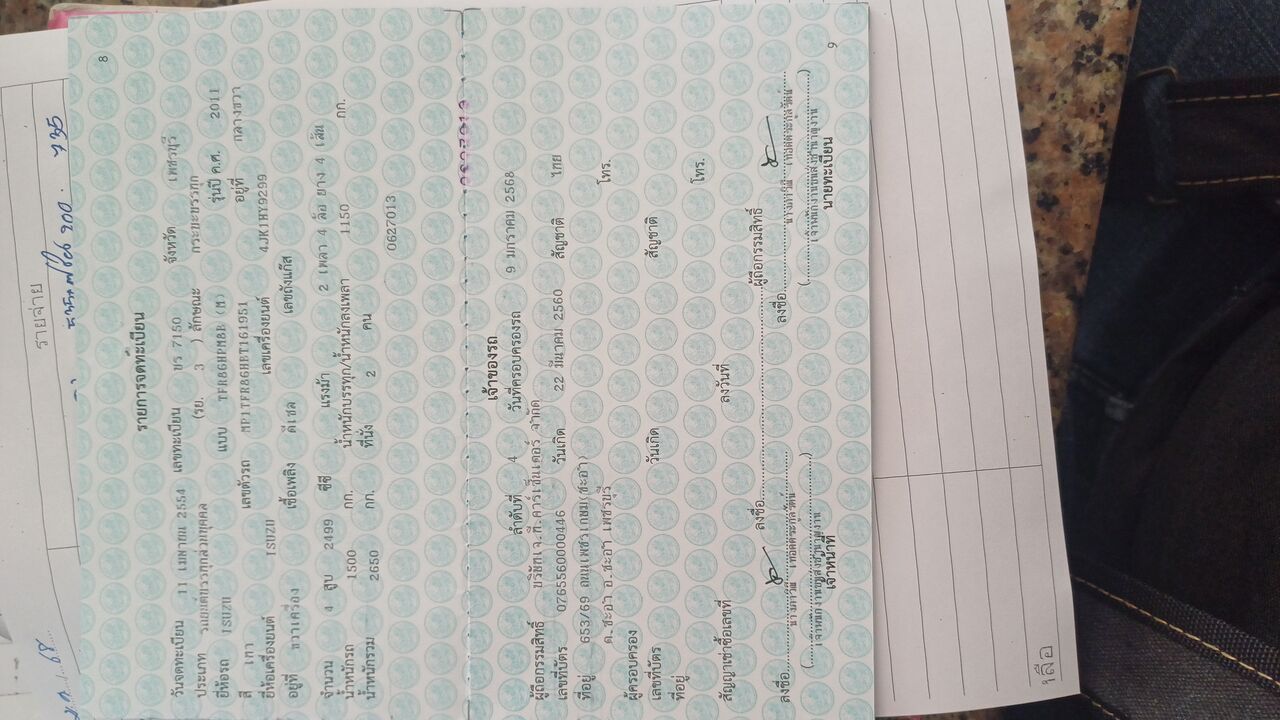 รายจ่าย
8
รายการจดทะเบียน
วันจดทะเบียน 11 เมษายน 2554 เลขทะเบียน บร 7150 จังหวัด เพชรบุรี
ประเภท รถยนต์บรรทุกส่วนบุคคล (รย. 3 ) ลักษณะ กระบะบรรทุก
ยี่ห้อรถ ISUZU แบบ TFR86HPM8B (M) รุ่นปี ค.ศ. 2011
สี เทา เลขตัวรถ MP1TFR86HBT161951 อยู่ที่ กลางขวา
ยี่ห้อเครื่องยนต์ ISUZU เลขเครื่องยนต์ 4JK1HY9299
อยู่ที่ ขวาเครื่อง เชื้อเพลิง ดีเซล เลขถังแก๊ส
จำนวน 4 สูบ 2499 ซีซี แรงม้า 2 เพลา 4 ล้อ ยาง 4 เส้น
น้ำหนักรถ 1500 กก. น้ำหนักบรรทุก/น้ำหนักลงเพลา 1150 กก.
น้ำหนักรวม 2650 กก. ที่นั่ง 2 คน
0627013
เจ้าของรถ
ลำดับที่ 4 วันที่ครอบครองรถ 9 มกราคม 2568
ผู้ถือกรรมสิทธิ์ บริษัทเจ.ที.คาร์เซ็นเตอร์ จำกัด
เลขที่บัตร 0765560000446 วันเกิด 22 มีนาคม 2560 สัญชาติ ไทย
ที่อยู่ 653/69 ถนนเพชรเกษม(ชะอำ) โทร.
ต.ชะอำ อ.ชะอำ เพชรบุรี
ผู้ครอบครอง
เลขที่บัตร วันเกิด สัญชาติ
ที่อยู่ โทร.
สัญญาเช่าซื้อเลขที่ ลงวันที่
ลงชื่อ ผู้ถือกรรมสิทธิ์
ลงชื่อ ลงชื่อ
เจ้าหน้าที่ นายทะเบียน
9
เหลือ